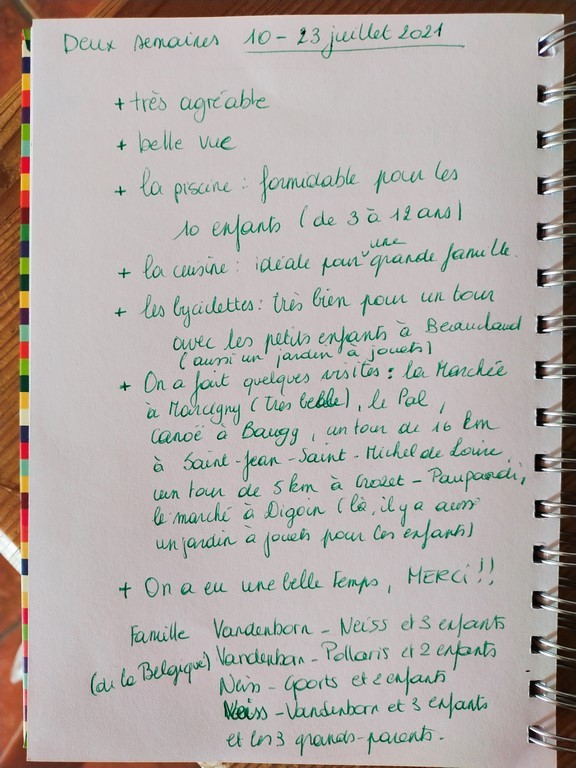 Deux semaines 10 - 23 juillet 2021
+ très agréable
+ belle vue
+ la piscine : formidable pour les
10 enfants (de 3 à 12 ans)
+ la cuisine : idéale pour une grande famille.
+ les byciclettes : très bien pour un tour
avec les petits enfants à Beauclaud
(aussi un jardin à jouets)
+ On a fait quelques visites : la Marchée
à Marcigny (très belle), le Pal,
canoë à Baugy, un tour de 16 km
à Saint-Jean-Saint-Michel de Loire,
un tour de 5 km à Crozet -
le marché à Digoin (là, il y a aussi
un jardin à jouets pour les enfants)
+ On a eu une belle temps, MERCI !!
Famille Vandenborn - Neiss et 3 enfants
(de la Belgique) Vandenborn - Pollaris et 2 enfants
Neiss - Goorts et 2 enfants
Neiss - Vandenborn et 3 enfants
et les 3 grands-parents.